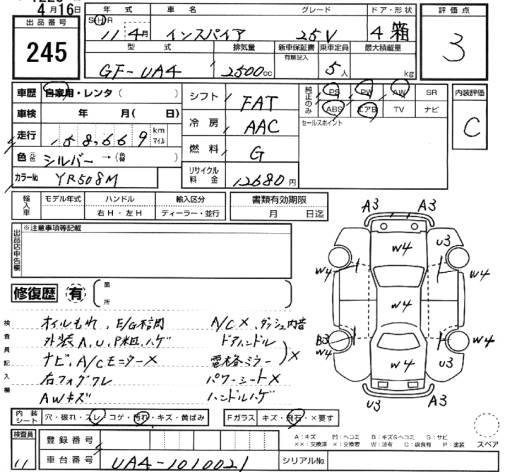 4月16日
出品番号
245
年式 車名 グレード ドア・形状
S・H・R 11年4月 インスパイア 25V 4 箱
型式 排気量 新車保証書 乗車定員 最大積載量
有類記入
GF-UA4 2500cc 5人 kg
評価点
3
車歴 自家用・レンタ ( )
車検 年 月( 日)
走行 158,669 km マイル
色 元色 シルバー →(色替 )
カラーNo YR508M
シフト FAT
冷房 AAC
燃料 G
リサイクル料金 12680円
純正のみ PS PW AW SR
ABS エアB TV ナビ
セールスポイント
内装評価
C
輸入車 モデル年式 ハンドル 輸入区分
右H・左H ディーラー・並行
書類有効期限
月 日迄
出品店申告欄 ※注意事項等記載
修復歴 有 箇所
検査員記入欄
オイルもれ、E/G不調
外装A,U,P凹,ハゲ
ナビ,A/Cモニター×
右フォグワレ
AWキズ
A/C×,ダッシュ内音
ドアハンドル
電格ミラー )×
パワーシート×
ハンドルハゲ
A3 A3
W4 U3
W4 W4
W4
W4 W4
B3 U3
W4 W4
A3 A3
内装シート 穴・破れ・スレ・コゲ・汚れ・キズ・黄ばみ
Fガラス キズ・飛石・×要す
検査員
11
登録番号
車台番号 UA4-1010021
シリアルNo.
A:キズ 凹:ヘコミ B:キズ&ヘコミ S:サビ
××:交換済 ×:交換要 W:波有 C:腐食有 P:塗装
スペア